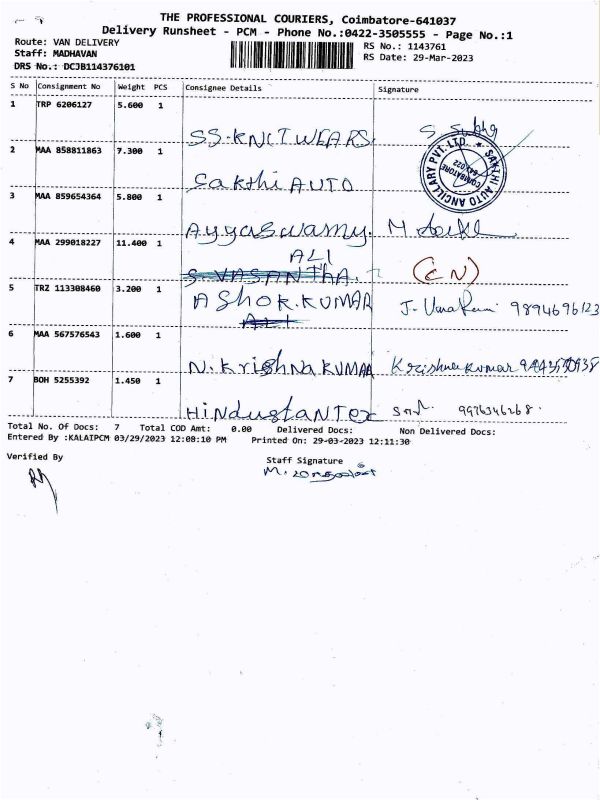 THE PROFESSIONAL COURIERS, Coimbatore-641037
Delivery Runsheet - PCM - Phone No.:0422-3505555 - Page No.:1
Route: VAN DELIVERY
Staff: MADHAVAN
DRS No.: DCJB114376101
RS No.: 1143761
RS Date: 29-Mar-2023
S No Consignment No Weight PCS Consignee Details Signature
1 TRP 6206127 5.600 1
SS.KNITWEARS.
2 MAA 858811863 7.300 1
Sakthi AUTO
SAKTHI AUTO ANCILLARY PVT. LTD. COIMBATORE
3 MAA 859654364 5.800 1
Ayyaswamy. M
4 MAA 299018227 11.400 1
ALI
S.VASANTHA. (CN)
5 TRZ 113308460 3.200 1
ASHOK.KUMAR J. 9894696123
6 MAA 567576543 1.600 1
N.Krishna KUMAR Krishna Kumar
7 BOH 5255392 1.450 1
HindustanTex 9976346268.
Total No. Of Docs: 7 Total COD Amt: 0.00 Delivered Docs: Non Delivered Docs:
Entered By :KALAIPCM 03/29/2023 12:08:10 PM Printed On: 29-03-2023 12:11:30
Verified By
Staff Signature